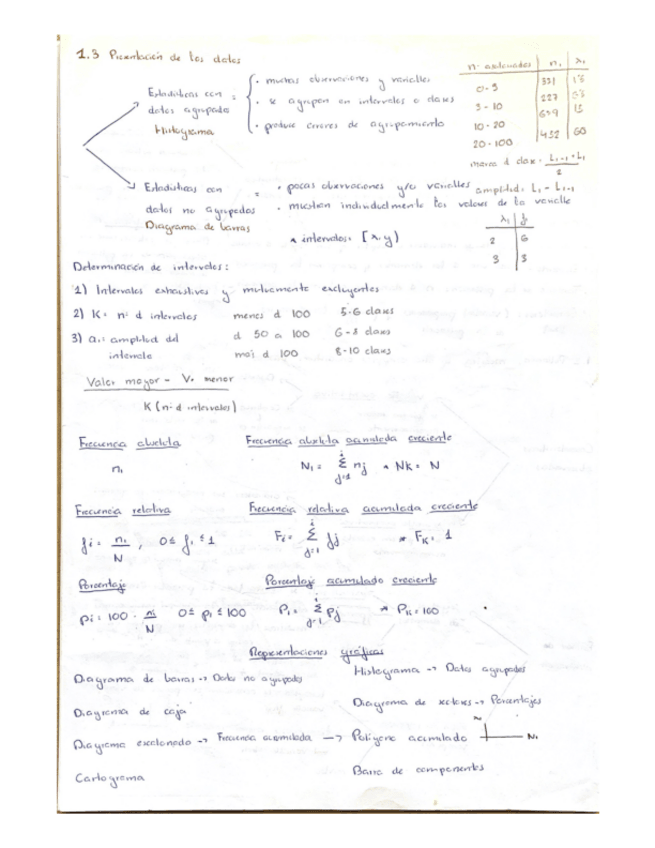 1.3 Presentación de los datos
Estadísticas con datos agrupados =
Histograma
· muchas observaciones y variables
· se agrupan en intervalos o clases
· produce errores de agrupamiento
nº asalariados | nᵢ | xᵢ
0-5 | 331
5-10 | 227
10-20 | 15
20-100 | 452 | 60
marca d clase =
amplitud = Lᵢ - Lᵢ₋₁
Estadísticas con datos no agrupados =
Diagrama de barras
· pocas observaciones y/o variables
· muestran individualmente los valores de la variable
* intervalos = [x, y)
2 | 6
3 | 3
Determinación de intervalos:
1) Intervalos exhaustivos y mutuamente excluyentes
2) K = nº d intervalos menos d 100 5-6 clases
3) aᵢ = amplitud del intervalo
d 50 a 100 6-8 clases
mas d 100 8-10 clases
Valor mayor - V. menor
K (nº d intervalos)
Frecuencia absoluta Frecuencia absoluta acumulada creciente
nᵢ Nᵢ = Σ nⱼ * Nk = N
Frecuencia relativa Frecuencia relativa acumulada creciente
fᵢ = nᵢ/N , 0 ≤ fᵢ ≤ 1 Fᵢ = Σ fⱼ * Fk = 1
Porcentaje Porcentaje acumulado creciente
pᵢ = 100 · nᵢ/N 0 ≤ pᵢ ≤ 100 Pᵢ = Σ pⱼ * Pk = 100
Representaciones gráficas
Diagrama de barras → Datos no agrupados Histograma → Datos agrupados
Diagrama de caja Diagrama de sectores → Porcentajes
Diagrama escalonado → Frecuencia acumulada → Polígono acumulado Nᵢ
Cartograma Barra de componentes